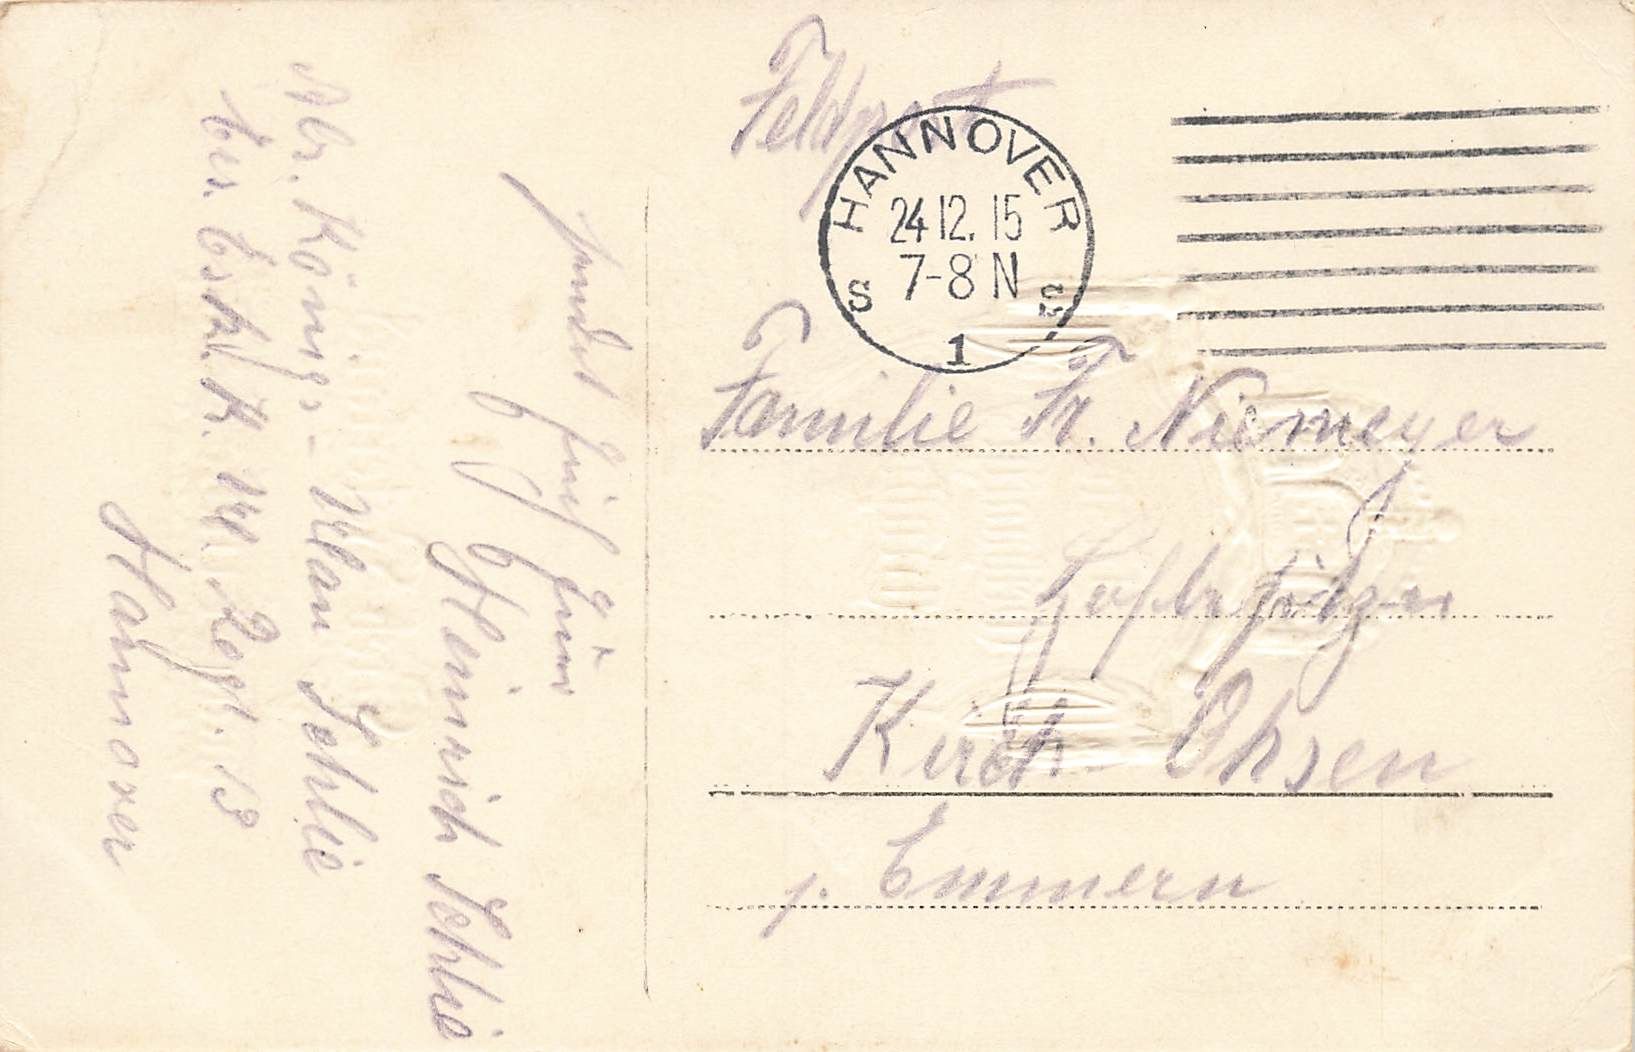 Feldpost
HANNOVER
24 12. 15
7-8 N
S S
1
Familie Fr. Niemeyer
Hofbesitzer
Kirch-Ohsen
p. Emmern
sendet
Heinrich Sohlie
Abs. Königs-Ulan Sohlie
Ers. Eskd. Regt. 13
Hannover